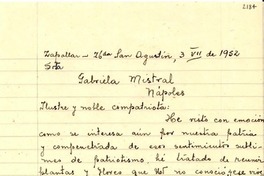 2184
Zapallar - Hda San Agustin, 3 VII de 1952
Srta
Gabriela Mistral
Nápoles
Ilustre y noble compatriota:
He visto con emoción
como se interesa aún por nuestra patria
y compenetrada de esos sentimientos subli-
mes de patriotismo, hé tratado de reunir
plantas y flores que Ud no conoció, ese nos